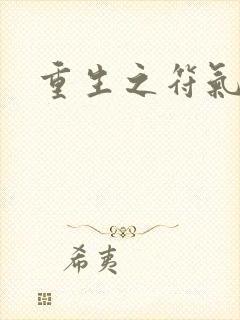 重生之符氣
希夷